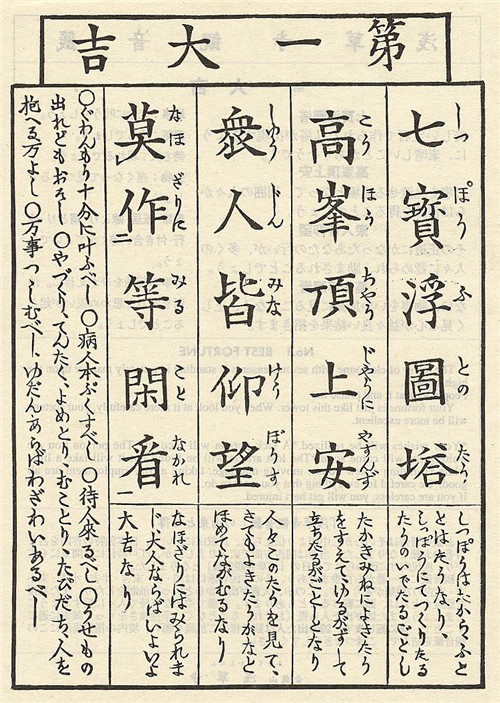 第一大吉
七寶浮圖塔
しつぽうふとのたう
高峯頂上安
こうほうちやうじやうにやすんず
衆人皆仰望
しゆうじんみなげうぼうす
莫作等閑看
なほざりにみることなかれ
しつぽうはたから、ふと
とはたうなり、
しつぽうにてつくりたる
たうのいでたるごとし
たかきみねによきたう
をすえて、ゆるがずして
立ちたるがごとしとなり
人々このたうを見て、
さてもよきたうかなと
ほめてながむるなり
なほざりにはみられま
じ大人ならばいよいよ
大吉なり
〇ぐわんもう十分に叶ふべし〇病人本ぶくすべし〇待人來るべし〇うせもの
出れどもおそし〇やづくり、てんたく、よめとり、むことり、たびだち、人を
抱へる万よし〇万事つゝしむべし、ゆだんあらばわざわいあるべし